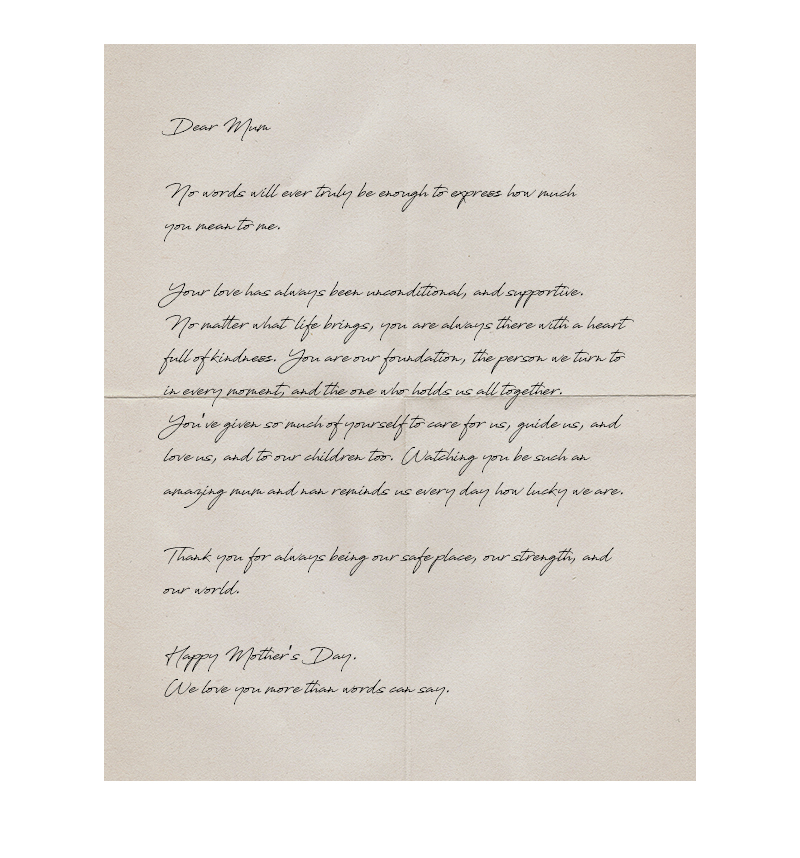 Dear Mum
No words will ever truly be enough to express how much
you mean to me.
Your love has always been unconditional, and supportive.
No matter what life brings, you are always there with a heart
full of kindness. You are our foundation, the person we turn to
in every moment, and the one who holds us all together.
You've given so much of yourself to care for us, guide us, and
love us, and to our children too. Watching you be such an
amazing mum and nan reminds us every day how lucky we are.
Thank you for always being our safe place, our strength, and
our world.
Happy Mother's Day.
We love you more than words can say.